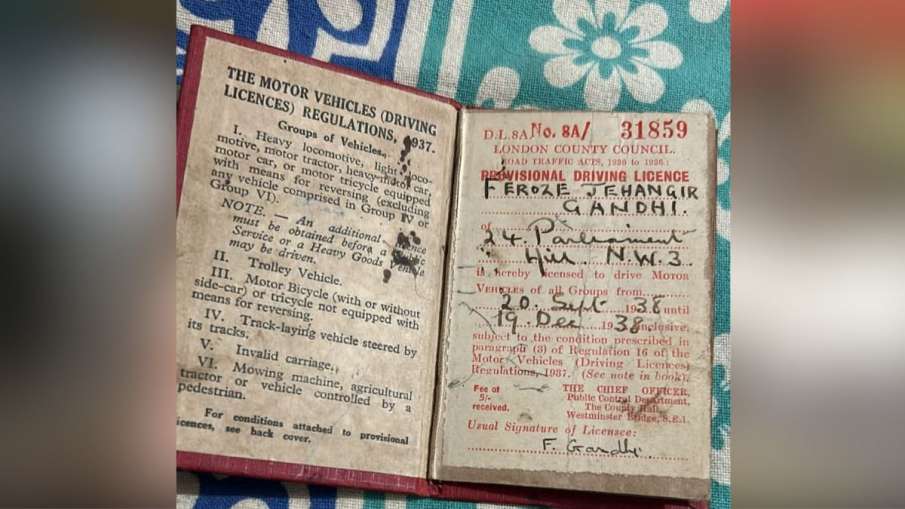 THE MOTOR VEHICLES (DRIVING
LICENCES) REGULATIONS, 1937.
Groups of Vehicles.
I. Heavy locomotive, light loco-
motive, motor tractor, heavy motor car,
motor car, or motor tricycle equipped
with means for reversing (excluding
any vehicle comprised in Group IV or
Group VI).
NOTE. — An additional licence
must be obtained before a Public
Service or a Heavy Goods Vehicle
may be driven.
II. Trolley Vehicle.
III. Motor Bicycle (with or without
side-car) or tricycle not equipped with
means for reversing.
IV. Track-laying vehicle steered by
its tracks.
V. Invalid carriage.
VI. Mowing machine, agricultural
tractor or vehicle controlled by a
pedestrian.
For conditions attached to provisional
licences, see back cover.
D.L.8A No. 8A/ 31859
LONDON COUNTY COUNCIL.
(ROAD TRAFFIC ACTS, 1930 to 1936.)
PROVISIONAL DRIVING LICENCE
FEROZE JEHANGIR
GANDHI.
of
24. Parliament
Hill. N.W.3.
is hereby licensed to drive MOTOR
VEHICLES of all Groups from
20. Sept 1938 until
19. Dec 1938 inclusive,
subject to the condition prescribed in
paragraph (3) of Regulation 16 of the
Motor Vehicles (Driving Licences)
Regulations, 1937. (See note in book).
Fee of
5/-
received.
THE CHIEF OFFICER,
Public Control Department,
The County Hall,
Westminster Bridge, S.E.1
Usual Signature of Licensee:
F. Gandhi.